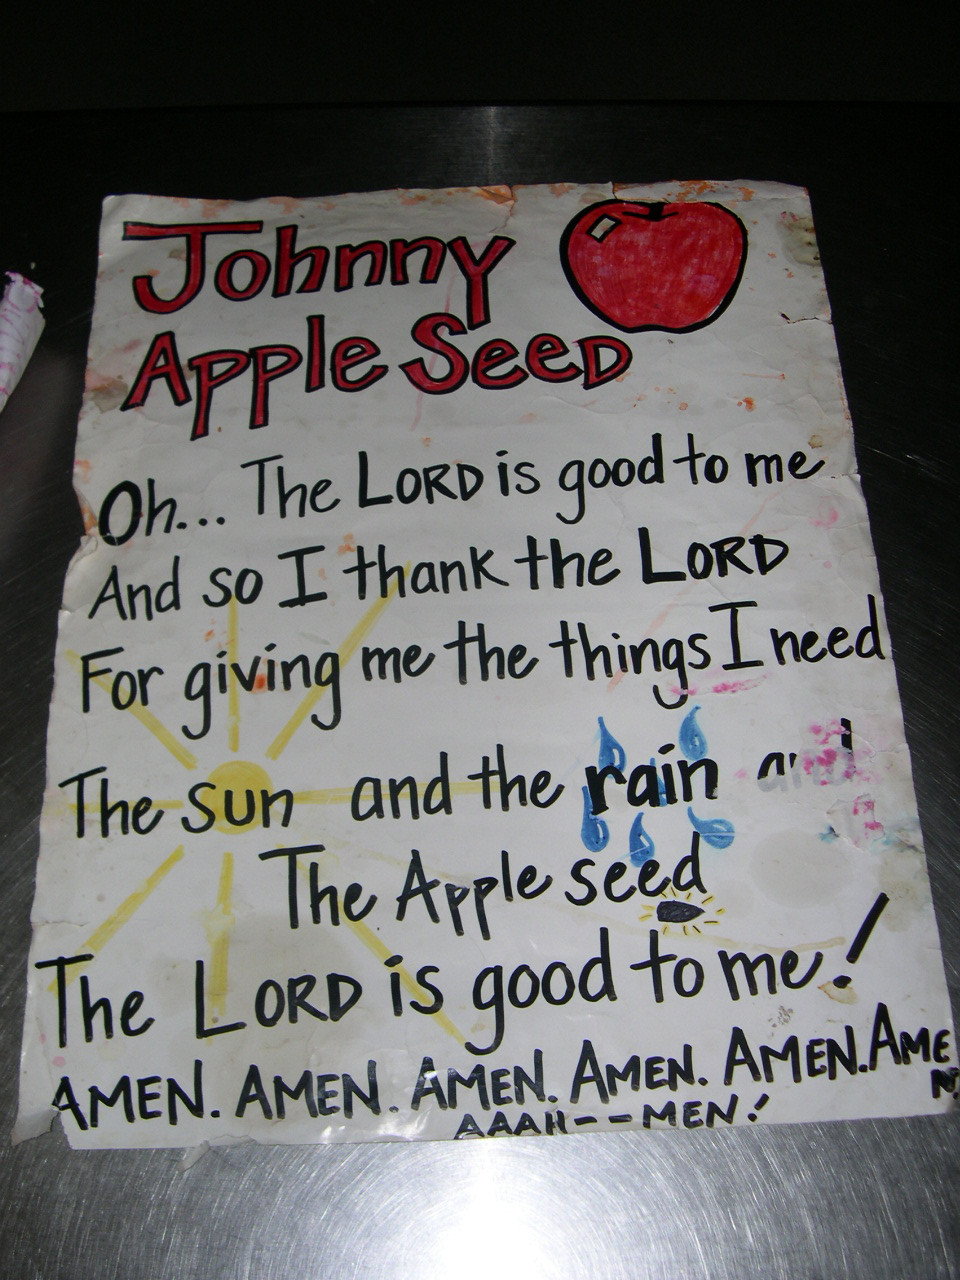 Johnny
Apple Seed
Oh... The LORD is good to me
And so I thank the LORD
For giving me the things I need
The sun and the rain and
The Apple seed
The LORD is good to me!
AMEN. AMEN. AMEN. AMEN. AMEN. AMEN.
AAAH--MEN!